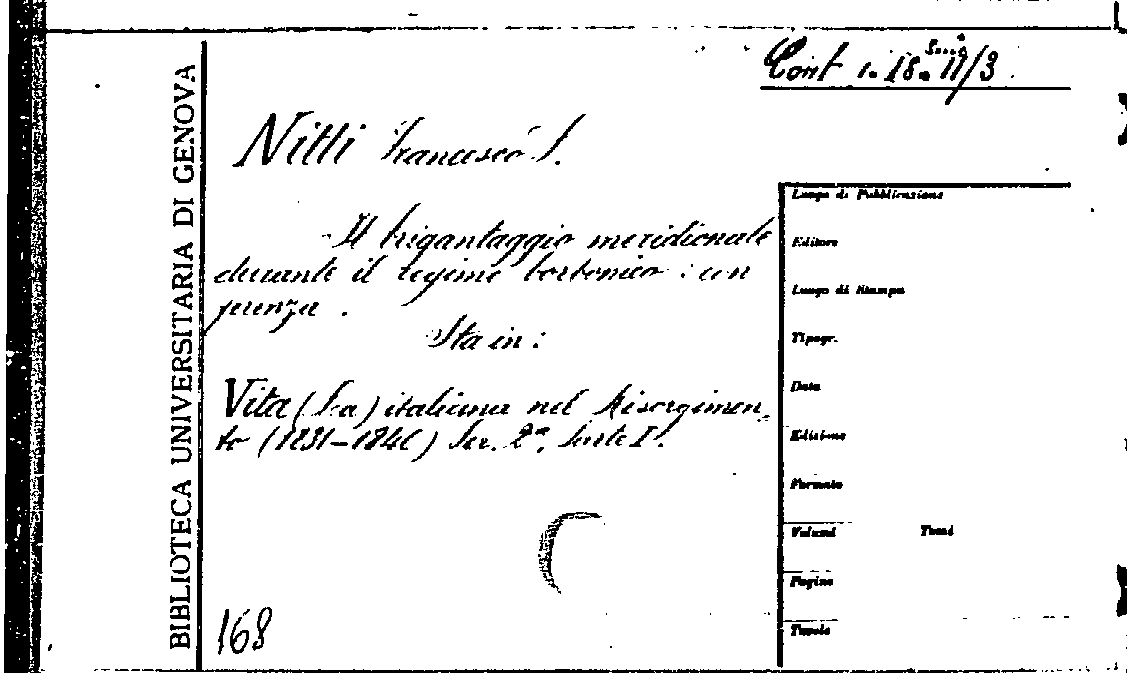 BIBLIOTECA UNIVERSITARIA DI GENOVA
Cont 18 11/3
Nitti Francesco S.
Il brigantaggio meridionale
durante il regime borbonico : con
ferenza .
Sta in :
Vita (La) italiana nel Risorgimen
to (1831-1846) Ser. 2ª, Parte I.
168
Luogo di Pubblicazione
Editore
Luogo di Stampa
Tipogr.
Data
Edizione
Formato
Volumi Tomi
Pagine
Tavole